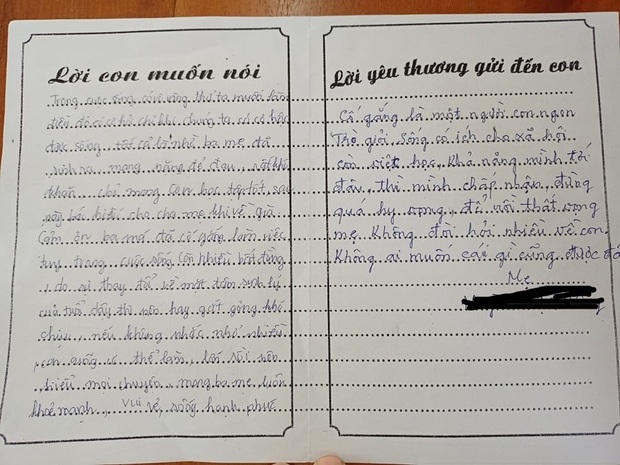 Lời con muốn nói
Trong cuộc sống có vô vàng thứ ta muốn làm
điều đó có cơ hả chỉ khi chúng ta có cơ hội
được sống tất cả là nhờ ba mẹ đã
sinh ra, mang nặng đẻ đau, vất khó
khăn chỉ mong con học tập tốt, sau
này báo hiếu cho cha mẹ khi về già
Cảm ơn ba má đã cố gắng làm việc
tuy trong cuộc sống còn nhiều bất đồng
do sự thay đổi về mặt tâm sinh lý
của tuổi dậy thì nên hay gắt gỏng khó
chịu, nếu không nhắc nhở nhiều
con cũng có thể làm, rồi
hiểu mọi chuyện mong ba mẹ luôn
khoẻ mạnh, vui vẻ, sống hạnh phúc
Lời yêu thương gửi đến con
Cố gắng là một người con ngon
Trò giỏi sống có ích cho xã hội
còn việt học, khả nảng mình tới
đâu, thì mình chấp nhận, đừng
quá hy vọng, để rồi thất vọng
mẹ. Không đòi hỏi nhiều về con.
Không ai muốn cái gì cũng được đâ
Mẹ